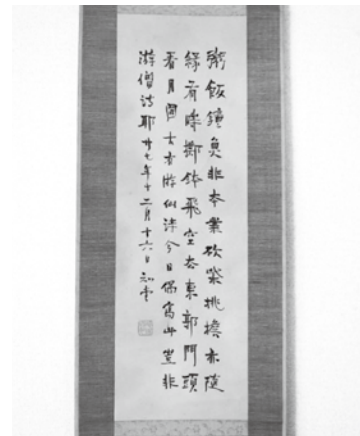 粥飯鐘魚非本業砍柴挑擔亦隨
緣有時擲鉢飛空去東郭門頭
看月圓古有游仙詩今日偶寫此豈非
游僧詩耶 廿七年十二月十六日 知堂